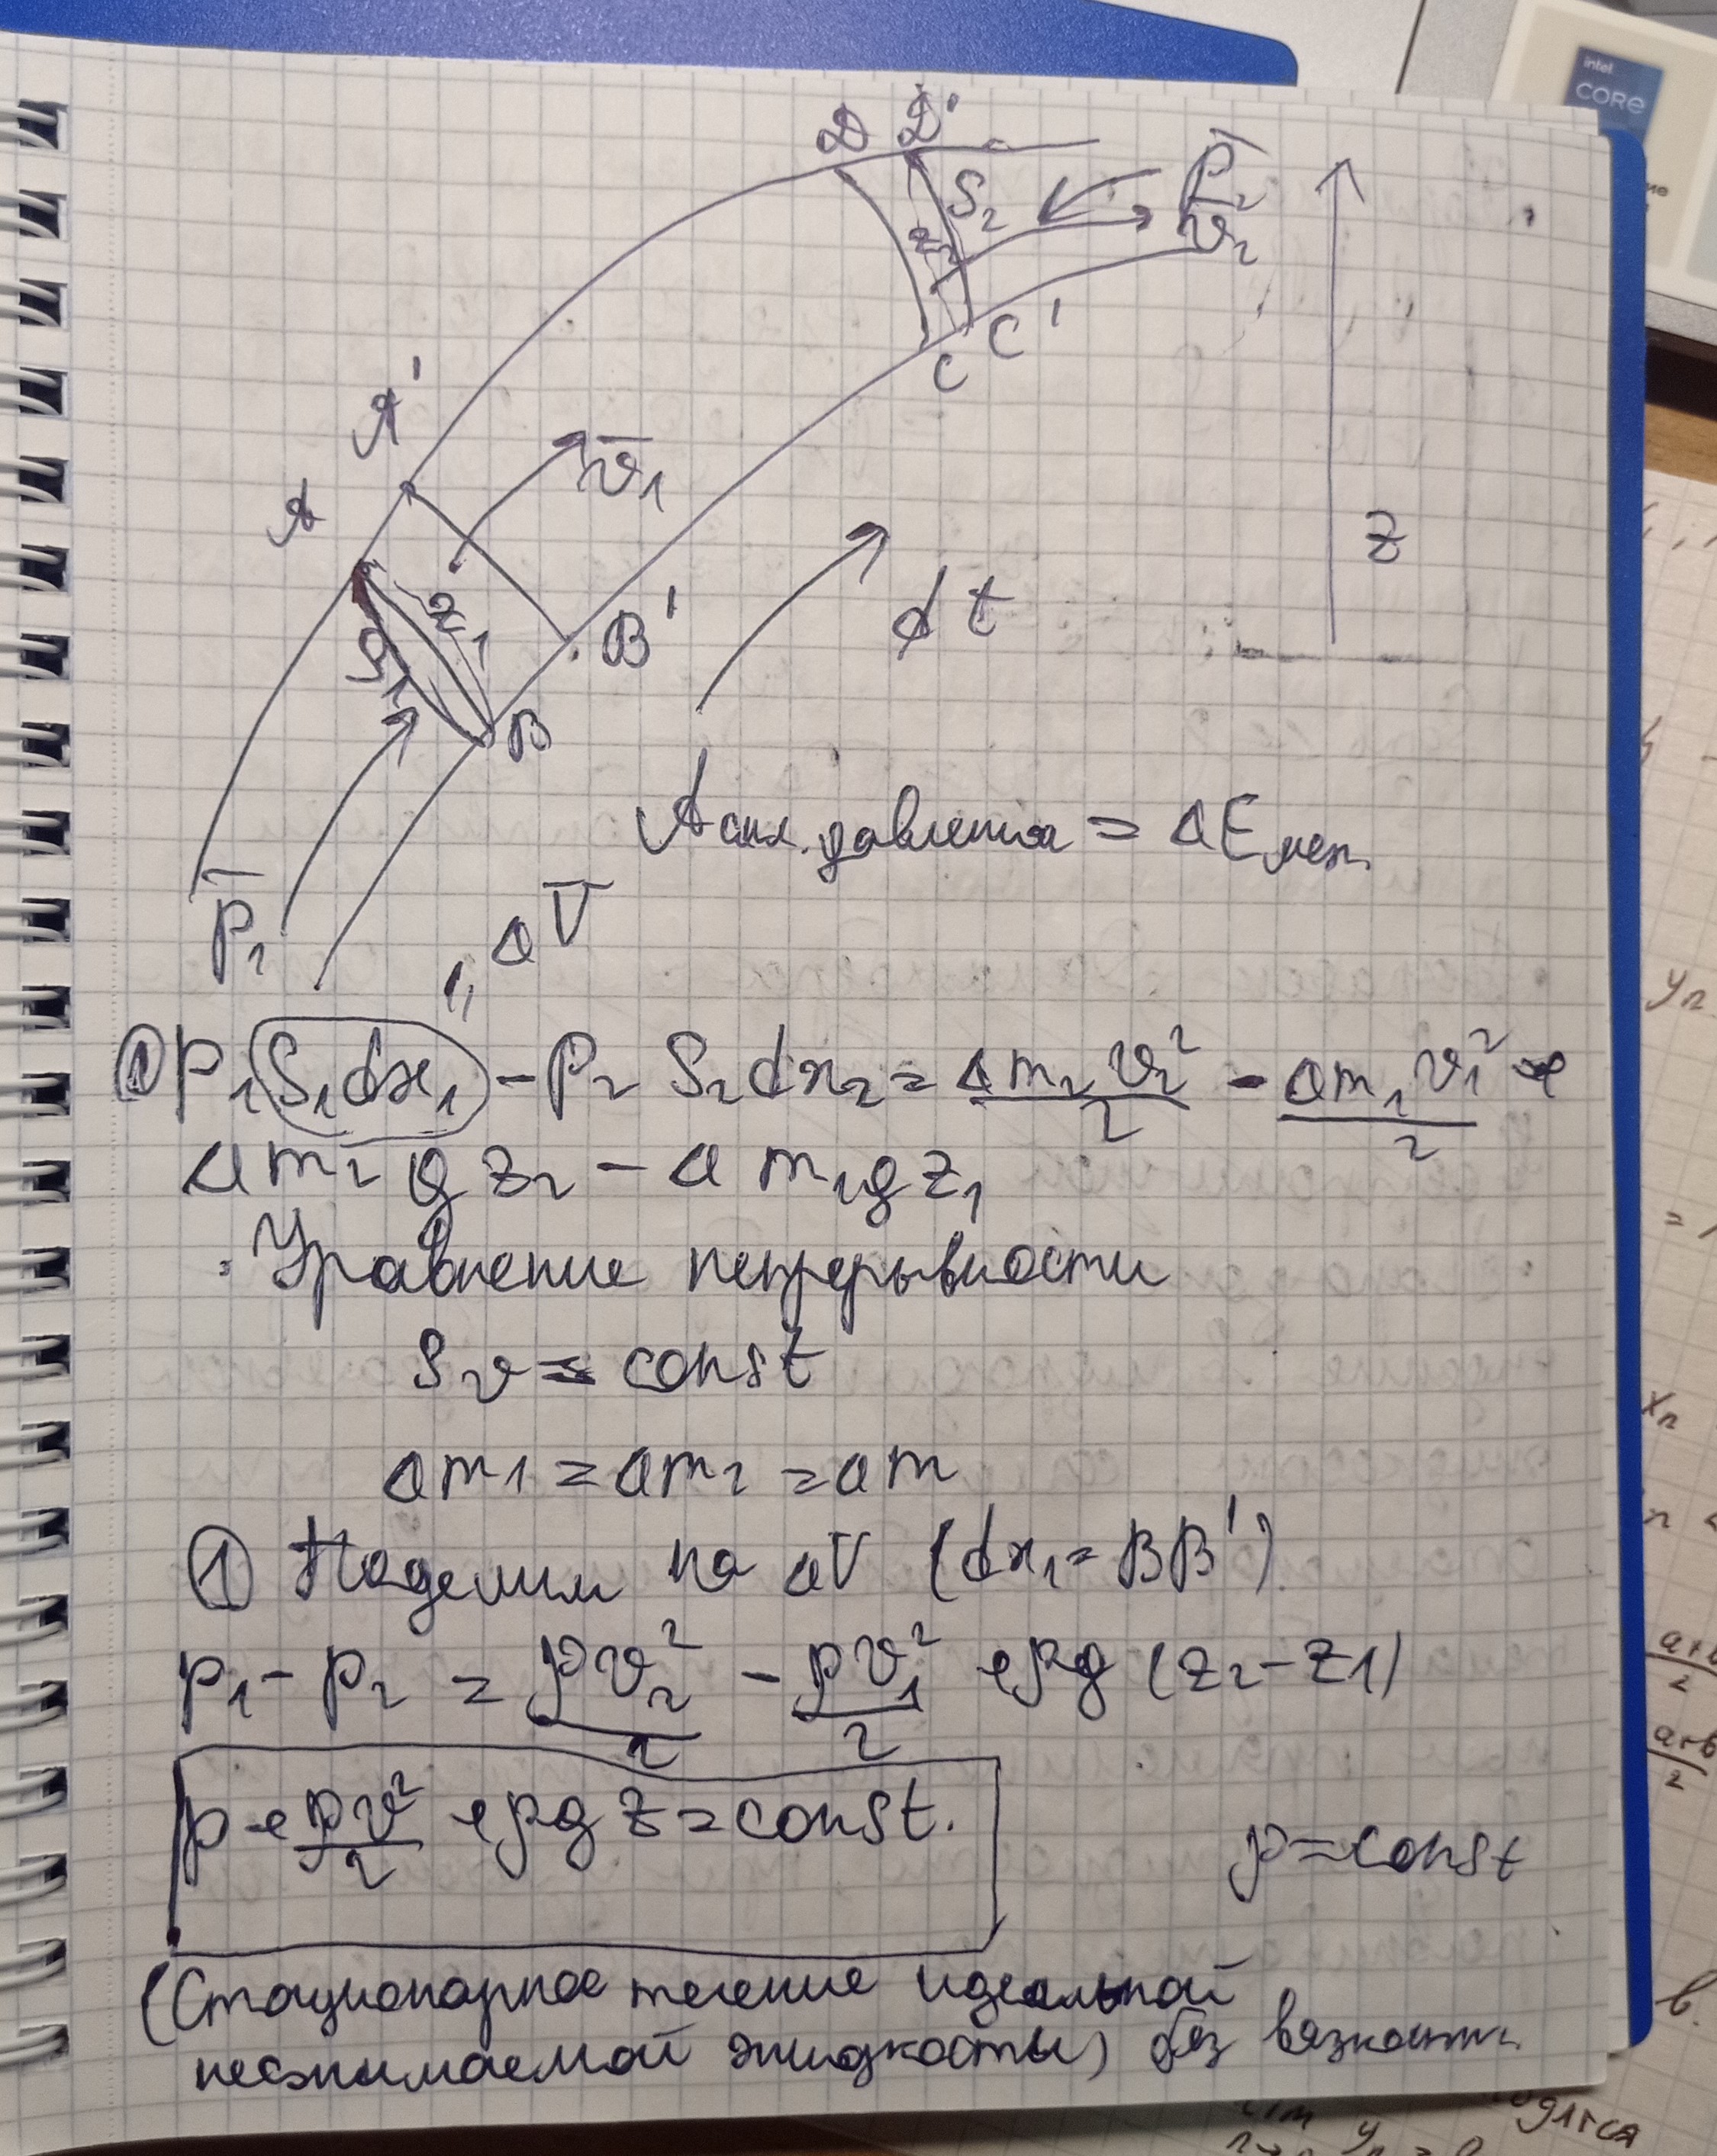 D D'
S₂
P̅₂
v̅₂
z₂
C'
C
A'
A
v̅₁
z₁
S₁
B'
B
dt
z
A сил. давления = ΔE мех.
P̅₁
ΔV
① P₁ S₁dx₁ - P₂ S₂dx₂ = Δm₂v₂²/2 - Δm₁v₁²/2 +
Δm₂gz₂ - Δm₁gz₁
Уравнение непрерывности
Sv = const
Δm₁ = Δm₂ = Δm
① Поделим на ΔV (dx₁ = BB')
p₁ - p₂ = ρv₂²/2 - ρv₁²/2 + ρg (z₂ - z₁)
p + ρv²/2 + ρgz = const.
ρ = const
(Стационарное течение идеальной
несжимаемой жидкости) без вязкости.
intel
CORE
yₙ
xₙ
a+b/2
a+b/2